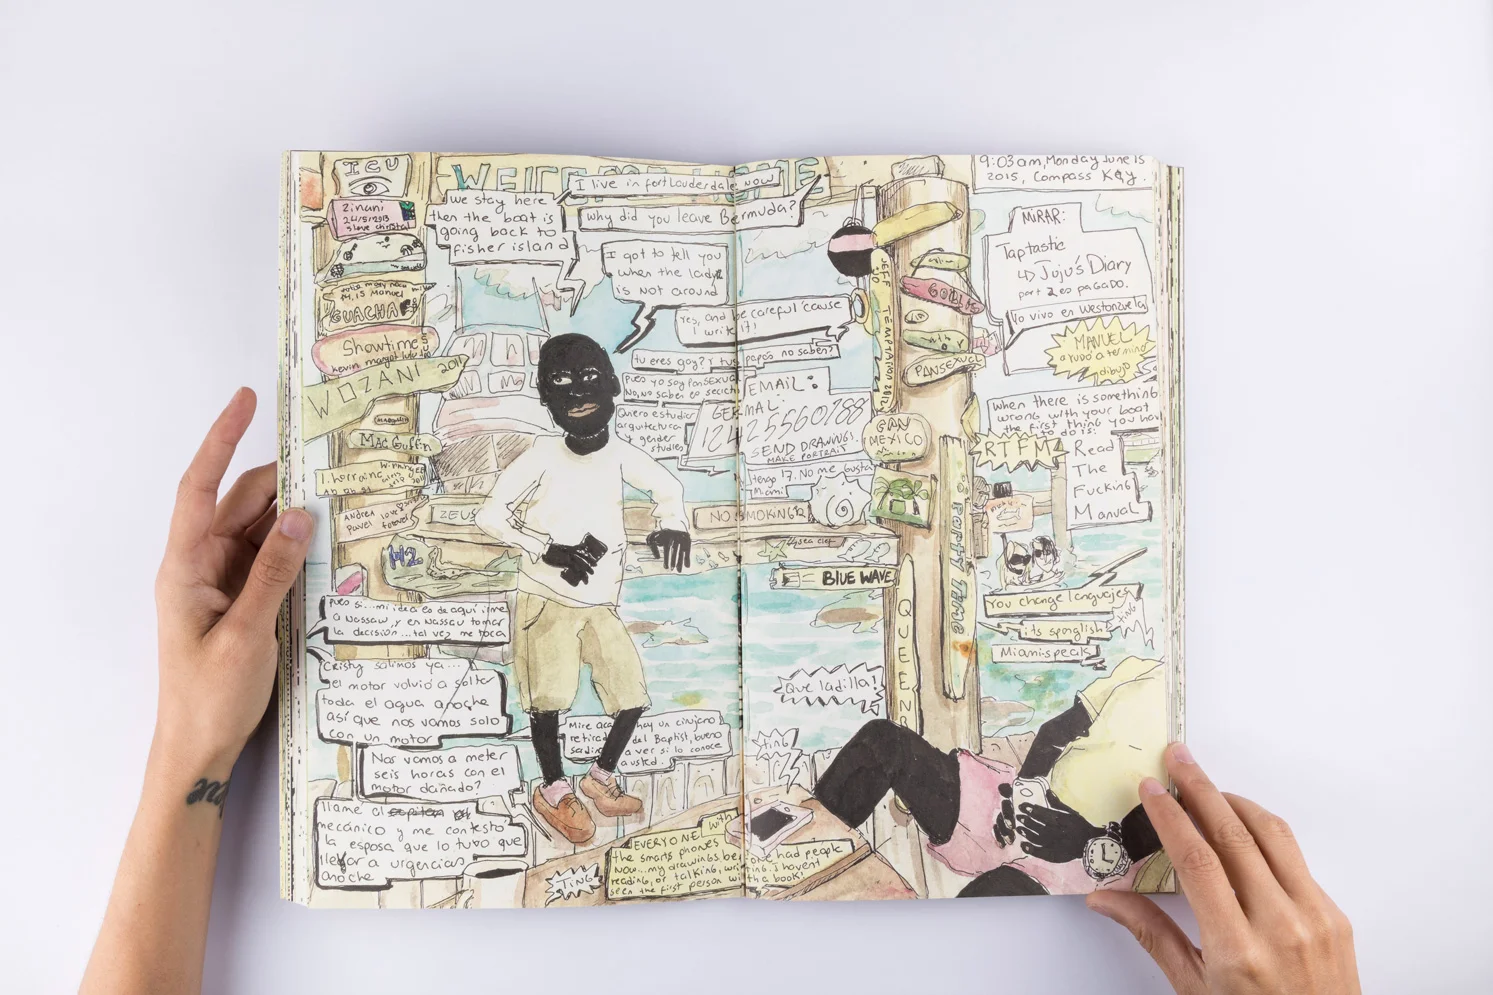 WELCOME
ICU
Zinani
24/5/2013
I love christal
M, is Manuel
GUACHA
Showtimes
Kevin margot lulu
WOZANI 2014
MacGuffin
Andrea love
Pavel forever
ZEUS
we stay here
then the boat is
going back to
fisher island
I live in fort Lauderdale now
why did you leave Bermuda?
I got to tell you
when the lady
is not around
Yes, and be careful 'cause
I write it!
tu eres gay? Y tus papás no saben?
pues yo soy pansexual
No, no saben es secreto
Quiero estudiar
arquitectura
y gender
studies
EMAIL:
SEND DRAWINGS!
MAKE PORTRAIT
tengo 17. No me gusta
Miami
NO SMOKING
BLUE WAVE
pues si...mi idea es de aquí irme
a Nassau, y en Nassau tomar
la decisión...tal vez me toca
Cristy salimos ya...
el motor volvió a soltar
toda el agua anoche
así que nos vamos solo
con un motor
Nos vamos a meter
seis horas con el
motor dañado?
llame al capitan
mecánico y me contestó
la esposa que lo tuvo que
llevar a urgencias
anoche
Mire acá hay un cirujano
retirado del Baptist, bueno
a ver si lo conoce
a usted.
Que ladilla!
Ting
Ting
EVERYONE with
the smarts phones before had people
now...my drawings
reading, or talking, writing. I havent
seen the first person with a book!
9:03 am, Monday June 15
2015, Compass Key.
MIRAR:
Taptastic
↳ Juju's Diary
part 2 es pagado.
Yo vivo en Westonzuela
MANUEL
ayudo a terminar
dibujo
JEFF TEMPTATION 2012
PANSEXUAL
GAN
MEXICO
QUEEN B
PARTY TIME
when there is something
wrong with your boat
the first thing you have
to do is:
RTFM
Read
The
Fucking
Manual
You change languajes
its sponglish
Miami-speak
ting